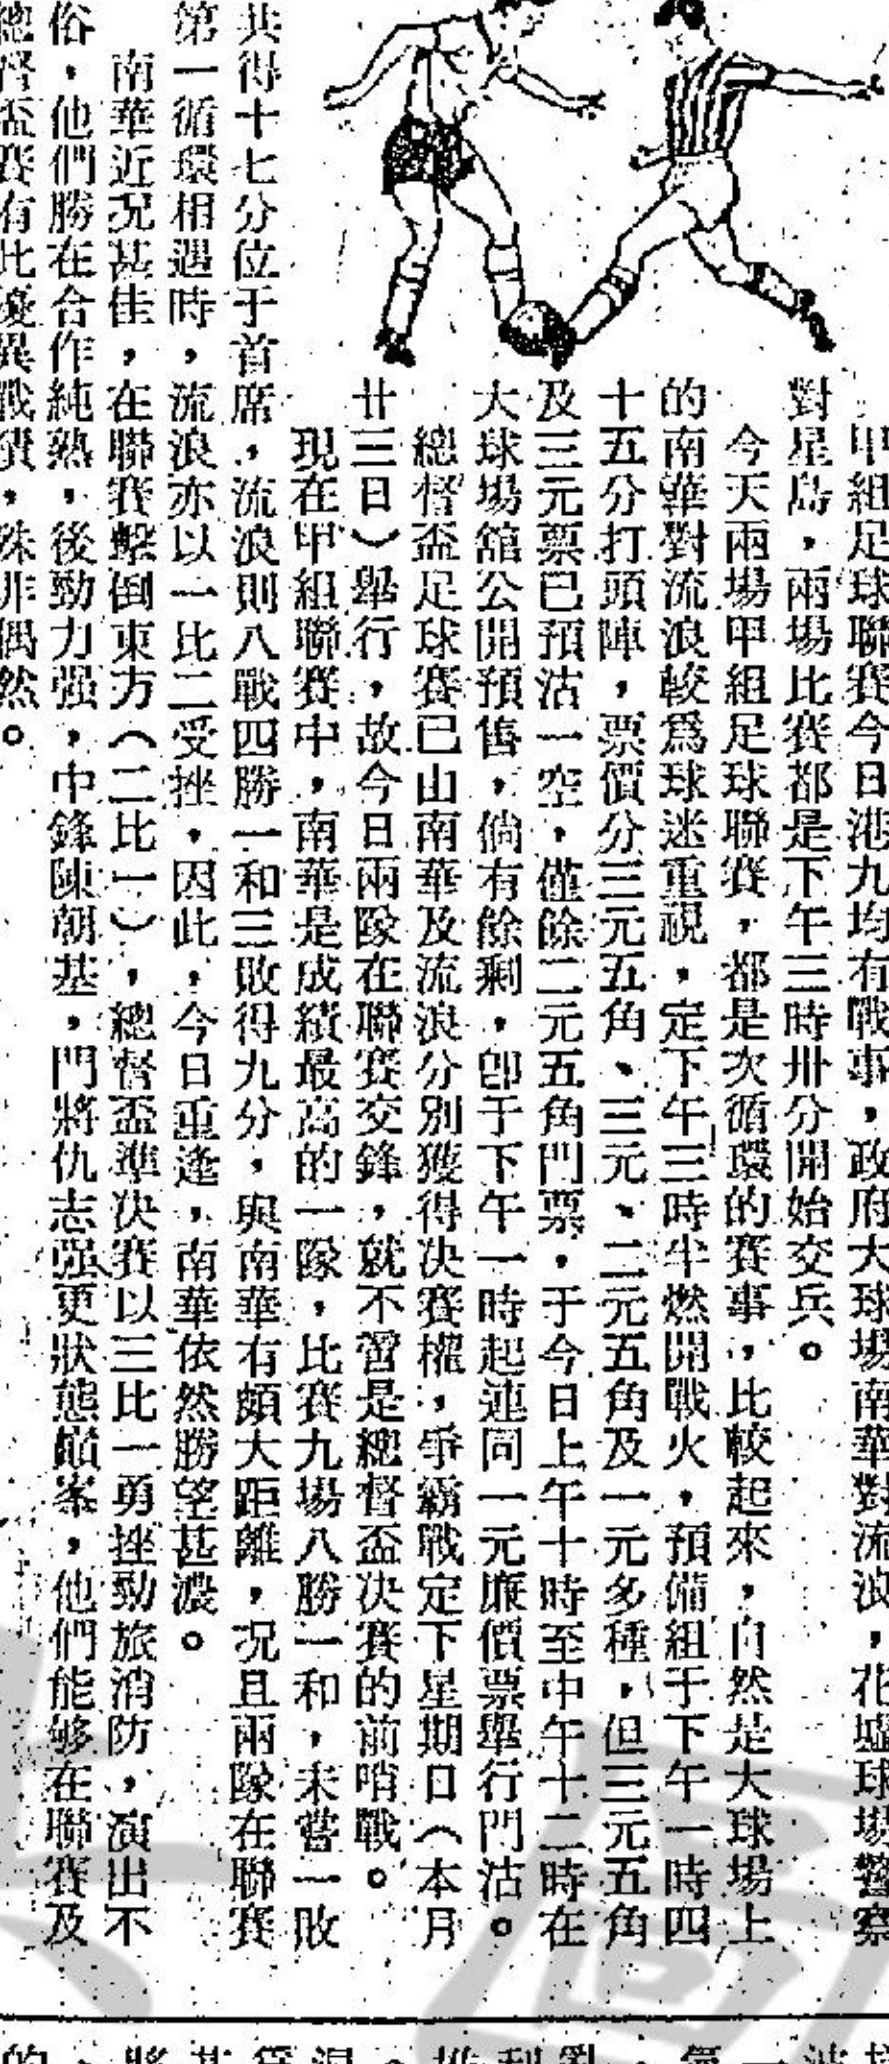 甲組足球聯賽今日港九均有戰事，政府大球場南華對流浪，花墟球場警察
對星島，兩場比賽都是下午三時卅分開始交兵。
今天兩場甲組足球聯賽，都是次循環的賽事，比較起來，自然是大球場上
的南華對流浪較為球迷重視，定下午三時半燃開戰火，預備組于下午一時四
十五分打頭陣，票價分三元五角、三元、二元五角及一元多種，但三元五角
及三元票已預沽一空，僅餘二元五角門票，于今日上午十時至中午十二時在
大球場舘公開預售，倘有餘剩，卽于下午一時起連同一元廉價票舉行門沽。
總督盃足球賽已山南華及流浪分別獲得决賽權，爭霸戰定下星期日（本月
廿三日）舉行，故今日兩隊在聯賽交鋒，就不啻是總督盃决賽的前哨戰。
現在甲組聯賽中，南華是成績最高的一隊，比賽九場八勝一和，未嘗一敗
共得十七分位于首席，流浪則八戰四勝一和三敗得九分，與南華有頗大距離，况且兩隊在聯賽
第一循環相遇時，流浪亦以一比二受挫，因此，今日重逢，南華依然勝望甚濃。
南華近况甚佳，在聯賽擊倒東方（二比一），總督盃準决賽以三比一勇挫勁旅消防，演出不
俗，他們勝在合作純熟，後勁力强，中鋒陳朝基，門將仇志强更狀態巔峯，他們能够在聯賽及
總督盃賽有比優異戰績，殊非偶然。